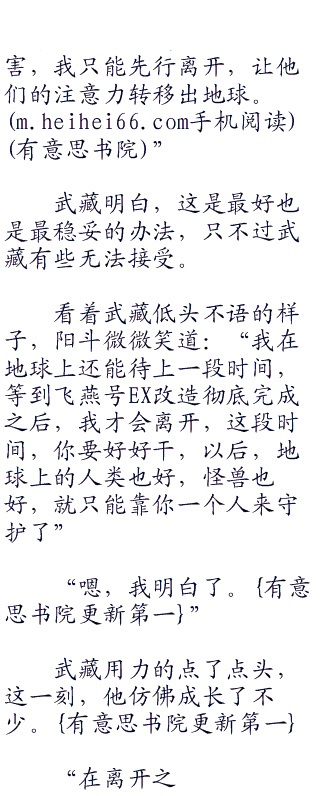 害，我只能先行离开，让他
们的注意力转移出地球。
(m.heihei66.com手机阅读)
(有意思书院)”
武藏明白，这是最好也
是最稳妥的办法，只不过武
藏有些无法接受。
看着武藏低头不语的样
子，阳斗微微笑道：“我在
地球上还能待上一段时间，
等到飞燕号EX改造彻底完成
之后，我才会离开，这段时
间，你要好好干，以后，地
球上的人类也好，怪兽也
好，就只能靠你一个人来守
护了”
“嗯，我明白了。{有意
思书院更新第一}”
武藏用力的点了点头，
这一刻，他仿佛成长了不
少。{有意思书院更新第一}
“在离开之